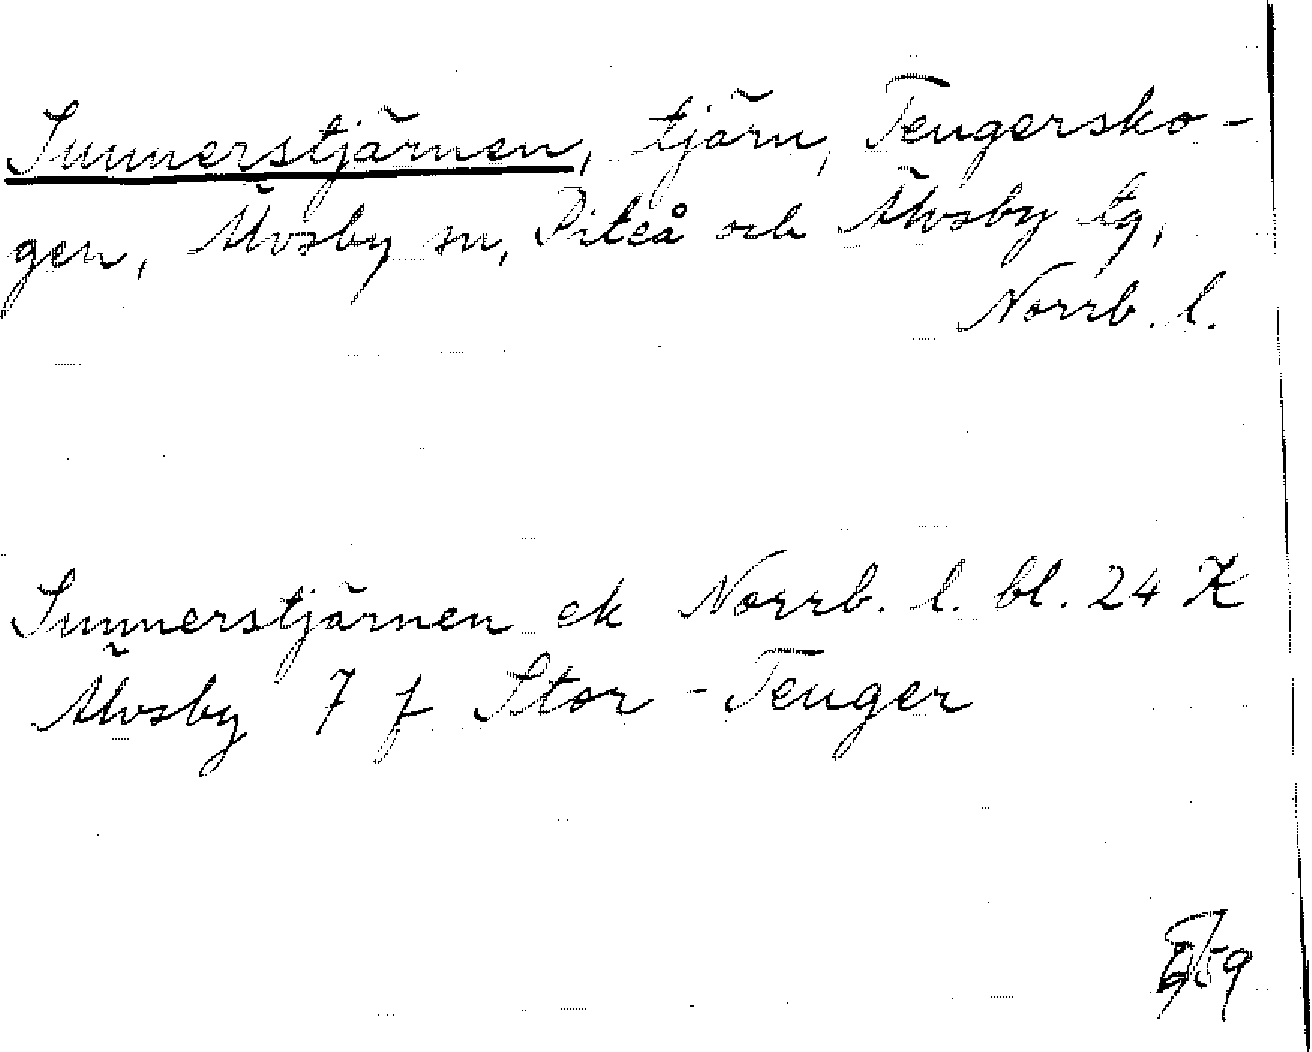 Sunnerstjärnen, tjärn, Teugersko-
gen, Älvsby sn, Piteå och Älvsby tg,
Norrb. l.
Sunnerstjärnen ek Norrb. l. bl. 24 K
Älvsby 7 f Stor-Teuger
59